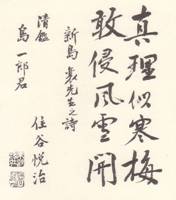 真理似寒梅
敢侵風雪開
新島襄先生之詩
清鑑
島一郎君
住谷悦治